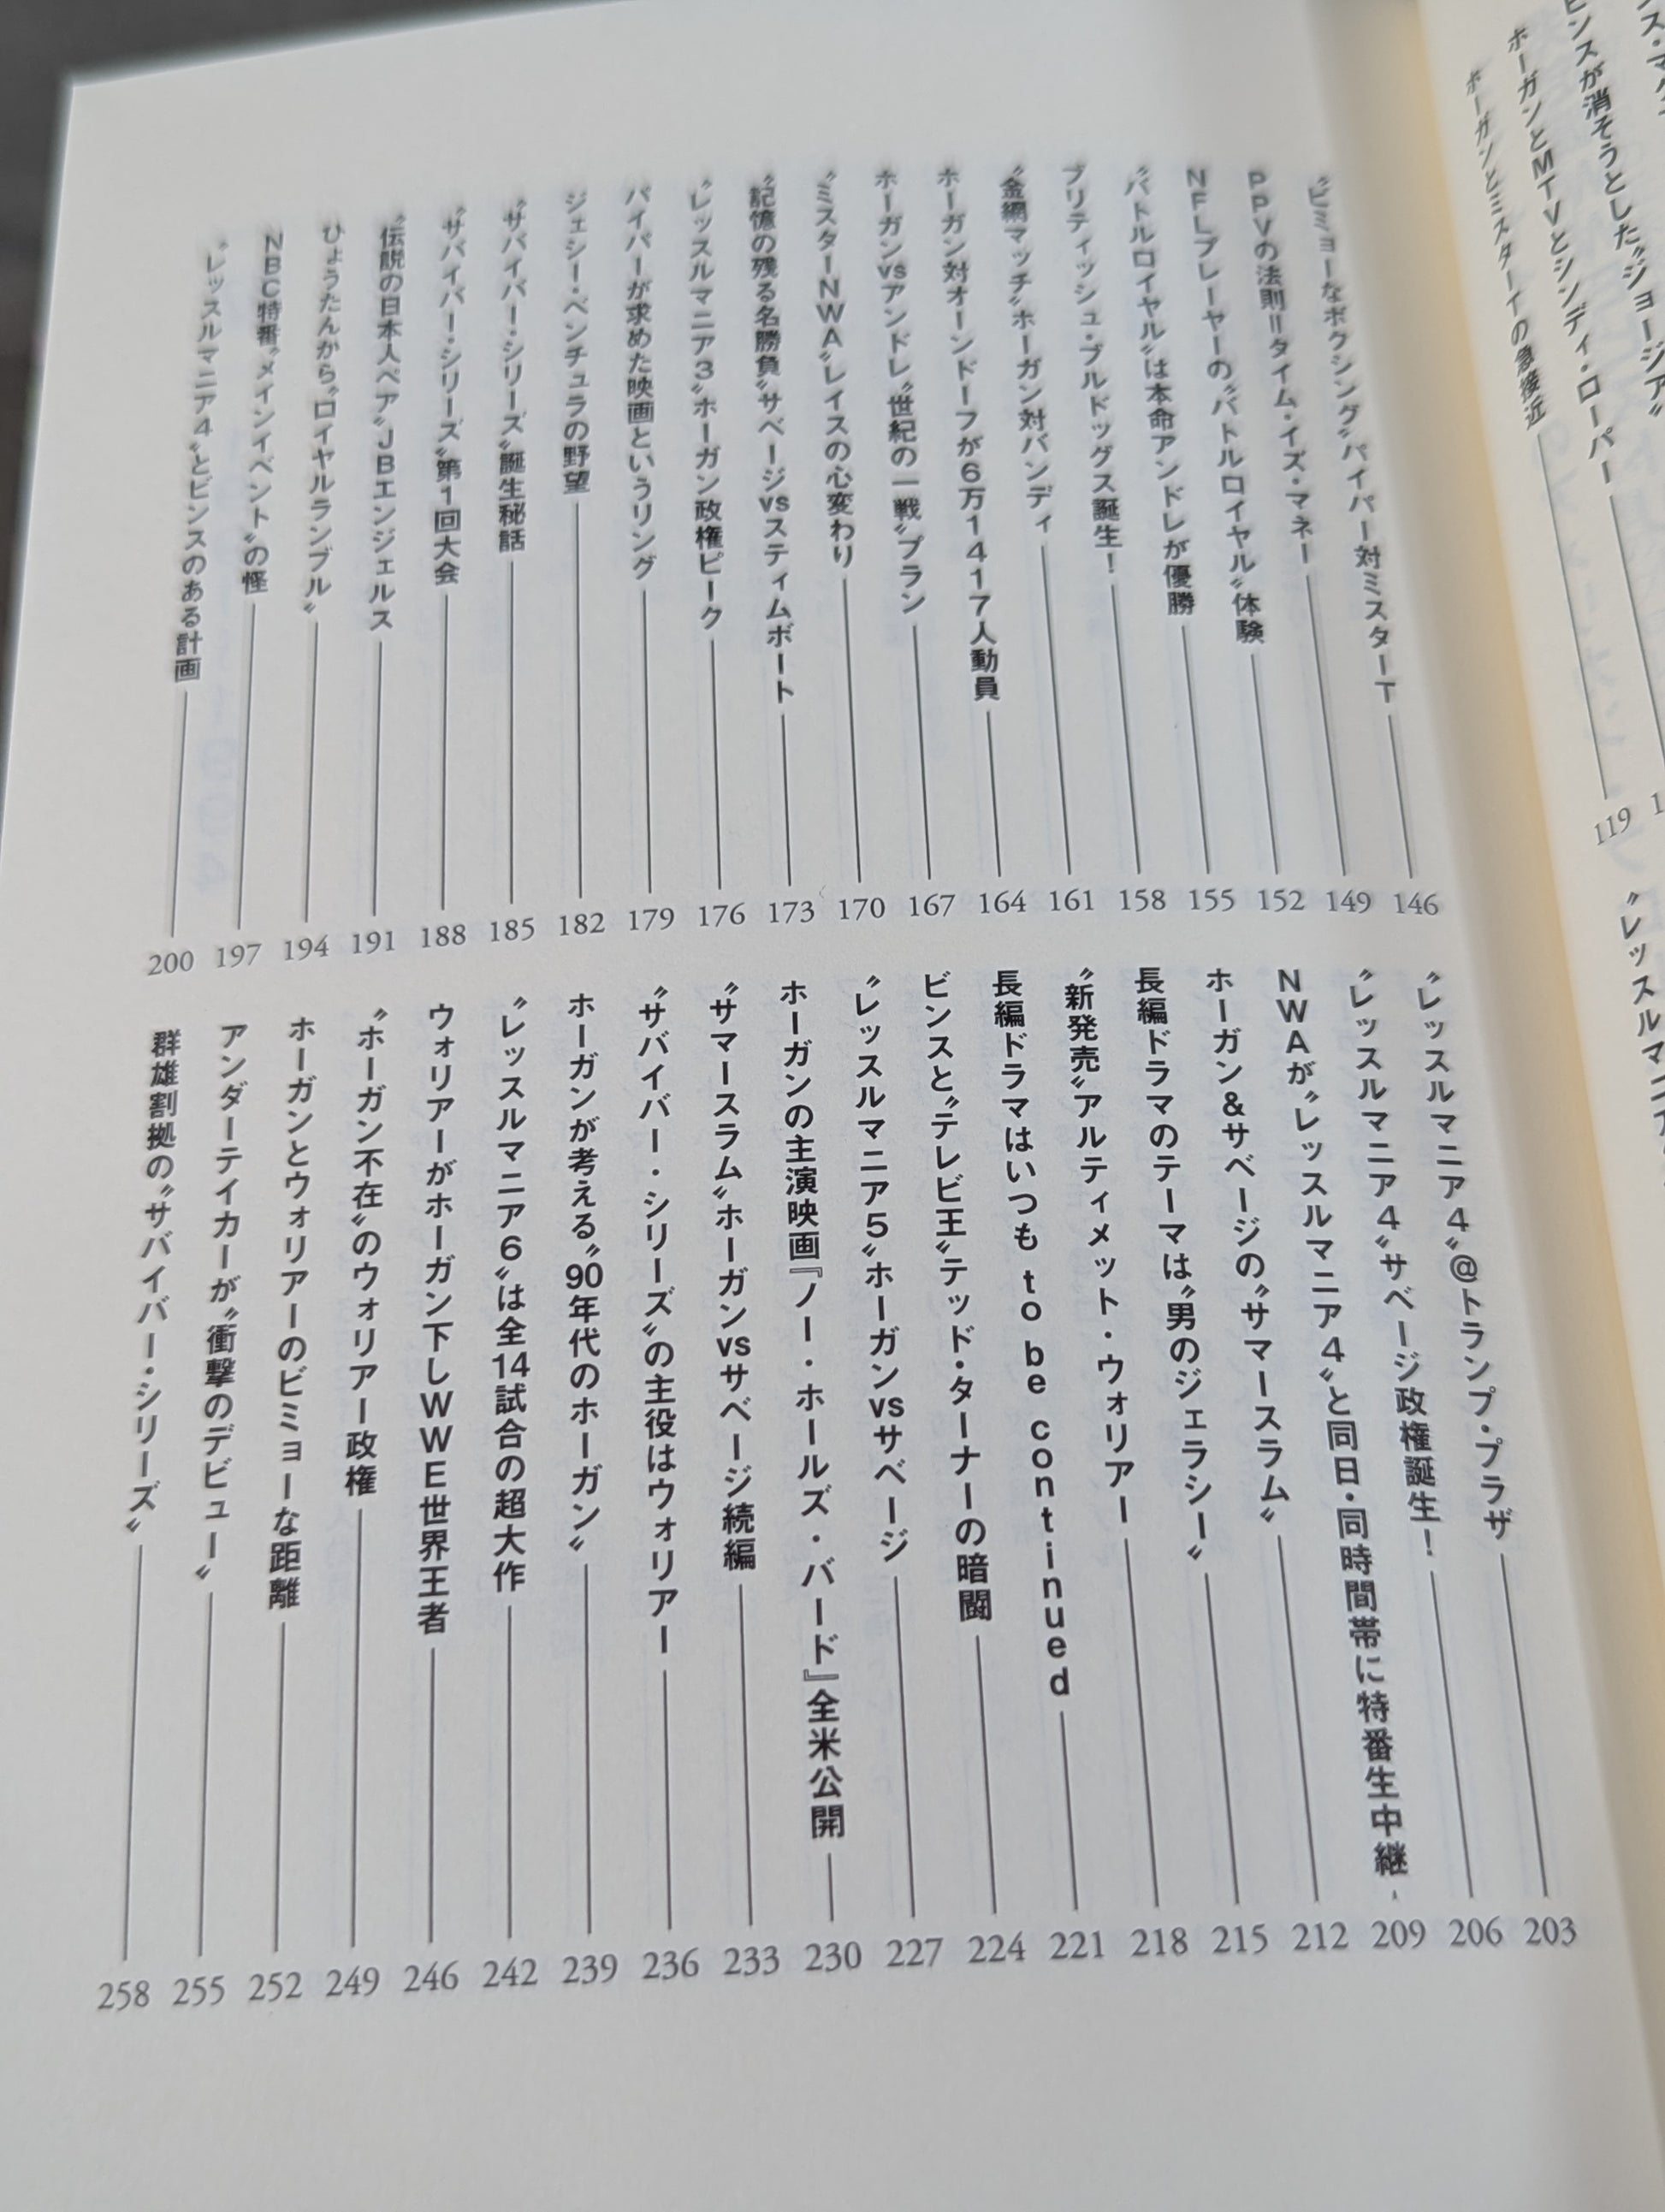 ス・マク
ビンスが消そうとした〝ジョージア〟
ホーガンとMTVとシンディ・ローパー
ホーガンとミスターTの急接近 119
〝レッスルマニア
〝ビミョーなボクシング〟パイパー対ミスターT 146
PPVの法則=タイム・イズ・マネー 149
NFLプレーヤーの〝バトルロイヤル〟体験 152
〝バトルロイヤル〟は本命アンドレが優勝 155
ブリティッシュ・ブルドッグス誕生! 158
〝金網マッチ〟ホーガン対バンディ 161
ホーガン対オーンドーフが6万1417人動員 164
ホーガンvsアンドレ〝世紀の一戦〟プラン 167
〝ミスターNWA〟レイスの心変わり 170
〝記憶の残る名勝負〟サベージvsスティムボート 173
〝レッスルマニア3〟ホーガン政権ピーク 176
パイパーが求めた映画というリング 179
ジェシー・ベンチュラの野望 182
〝サバイバー・シリーズ〟誕生秘話 185
〝サバイバー・シリーズ〟第1回大会 188
〝伝説の日本人ペア〟JBエンジェルス 191
ひょうたんから〝ロイヤルランブル〟 194
NBC特番〝メインイベント〟の怪 197
〝レッスルマニア4〟とビンスのある計画 200
〝レッスルマニア4〟@トランプ・プラザ 203
〝レッスルマニア4〟サベージ政権誕生! 206
NWAが〝レッスルマニア4〟と同日・同時間帯に特番生中継 209
ホーガン&サベージの〝サマースラム〟 212
長編ドラマのテーマは〝男のジェラシー〟 215
〝新発売〟アルティメット・ウォリアー 218
長編ドラマはいつも to be continued 221
ビンスと〝テレビ王〟テッド・ターナーの暗闘 224
〝レッスルマニア5〟ホーガンvsサベージ 227
ホーガンの主演映画『ノー・ホールズ・バード』全米公開 230
〝サマースラム〟ホーガンvsサベージ続編 233
〝サバイバー・シリーズ〟の主役はウォリアー 236
ホーガンが考える〝90年代のホーガン〟 239
〝レッスルマニア6〟は全14試合の超大作 242
ウォリアーがホーガン下しWWE世界王者 246
〝ホーガン不在〟のウォリアー政権 249
ホーガンとウォリアーのビミョーな距離 252
アンダーテイカーが〝衝撃のデビュー〟 255
群雄割拠の〝サバイバー・シリーズ〟 258